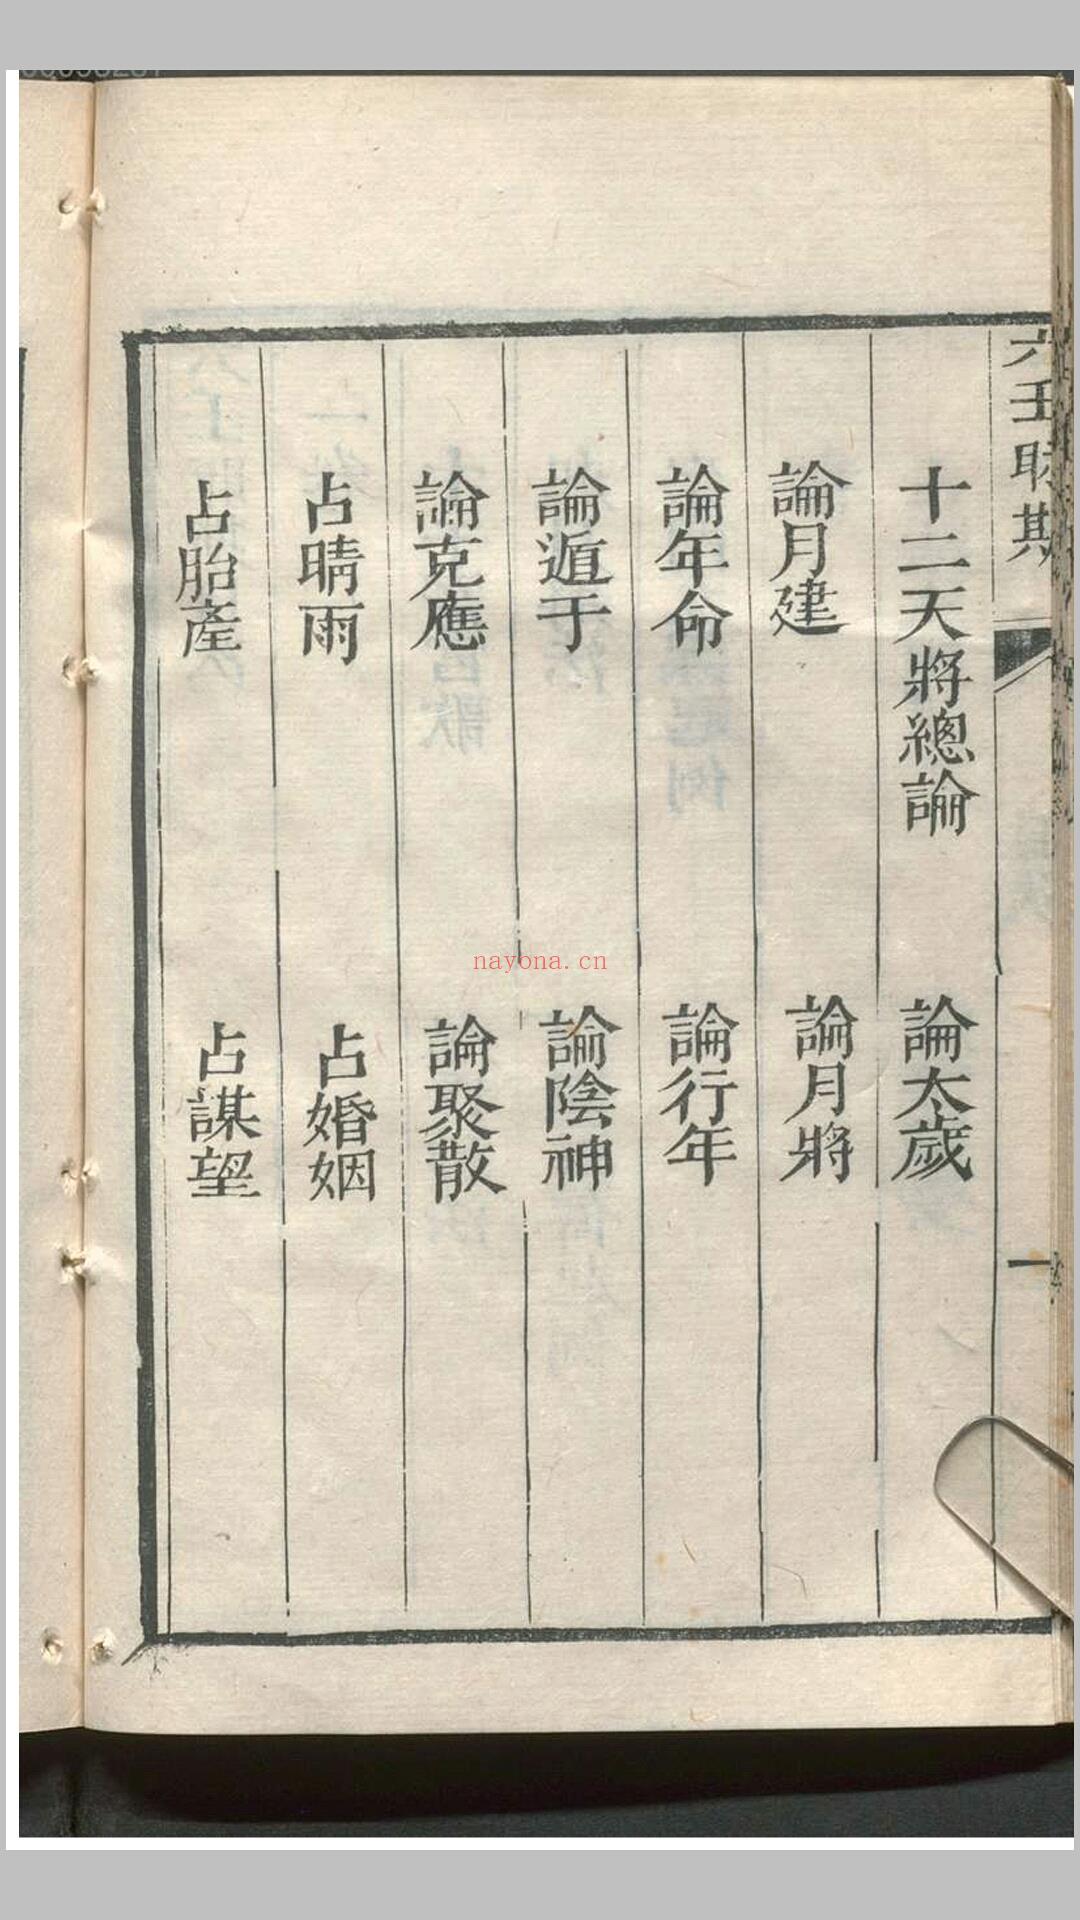 六壬眎斯
一
十二天將總論 論太歲
論月建 論月將
論年命 論行年
論遁于 論陰神
論克應 論聚散
占晴雨 占婚姻
占胎產 占謀望
nayona.cn